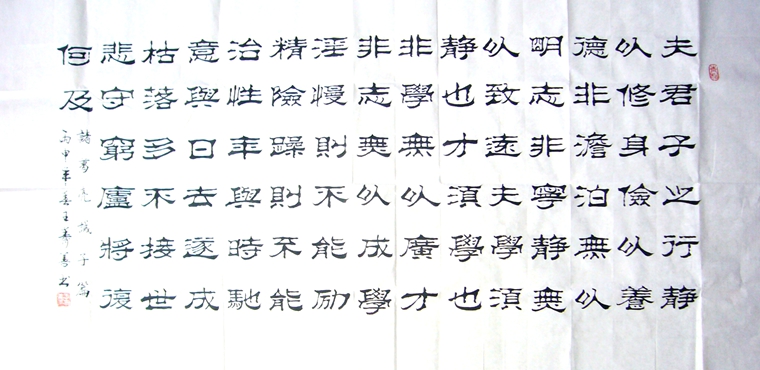 夫君子之行静
以修身儉以養
德非澹泊無以
明志非寧静無
以致遠夫學須
静也才須學也
非學無以廣才
非志無以成學
淫慢則不能励
精險躁則不能
治性年與時馳
意與日去遂成
枯落多不接世
悲守窮廬將復
何及
諸葛亮誡子篇
丙申年春王壽书